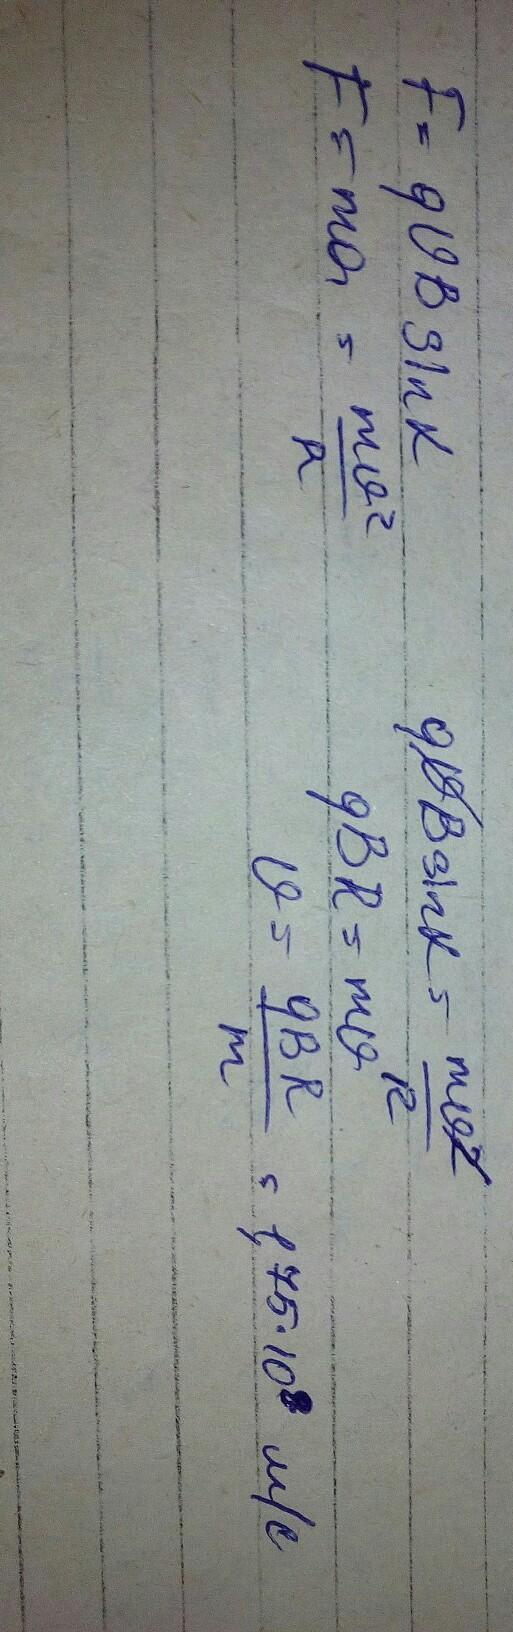 F = qυB sinα
F = ma = mυ²/R
qυB sinα = mυ²/R
qBR = mυ
υ = qBR/m = 1,75·10⁸ м/с